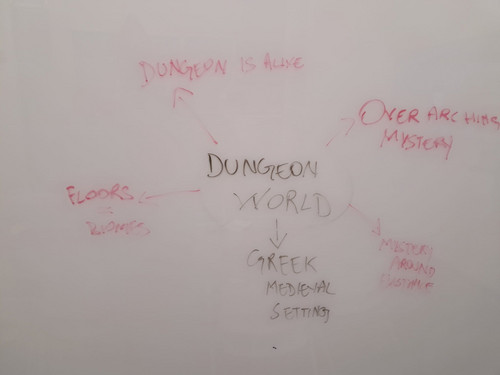 DUNGEON IS ALIVE
OVER ARCHING
MYSTERY
DUNGEON
WORLD
FLOORS
=
BIOMES
GREEK
MEDIEVAL
SETTING
MYSTERY
AROUND